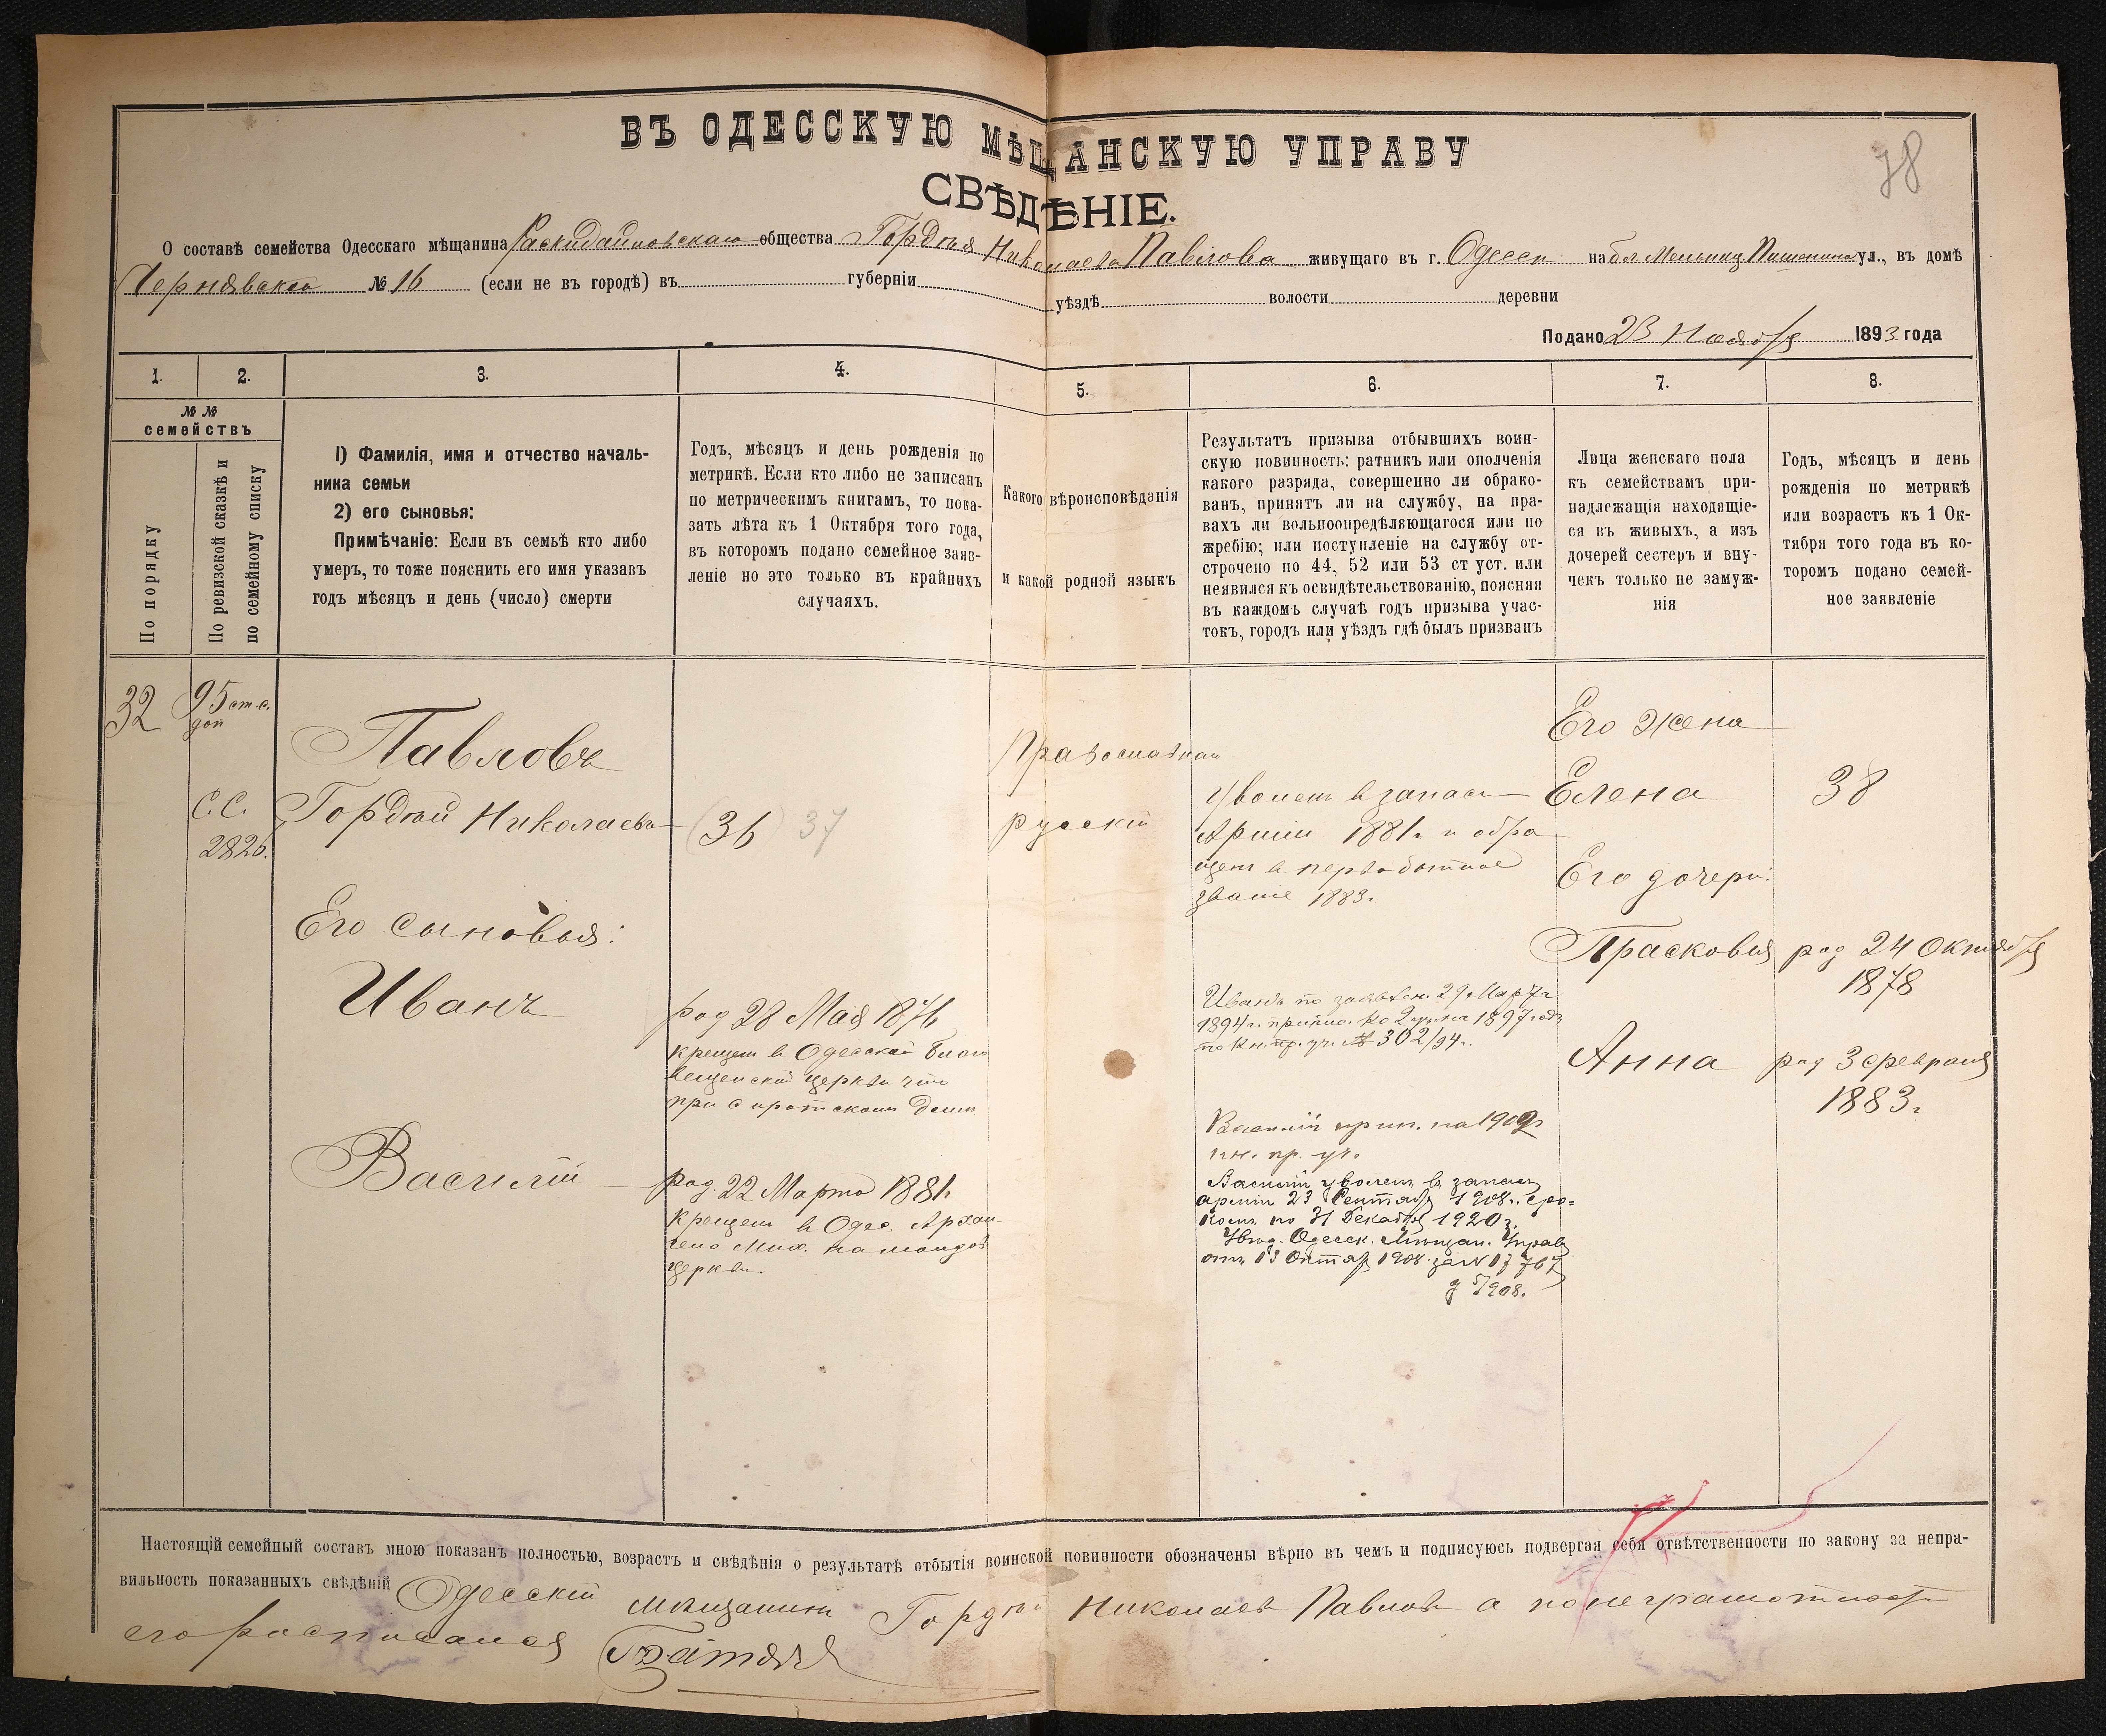 78
ВЪ ОДЕССКУЮ МѢЩАНСКУЮ УПРАВУ
СВѢДѢНІЕ.
О составѣ семейства Одесскаго мѣщанина Раскидайловскаго общества Гордѣя Николаева Павлова живущаго въ г. Одессѣ на бол Мельниц ул., въ домѣ
Чернявскаго № 16 (если не въ городѣ) въ губерніи уѣздѣ волости деревни
Подано 23 Ноября 1893 года
1. 2. 3. 4. 5. 6. 7. 8.
№ №
семействъ
По порядку
По ревизской сказкѣ и
по семейному списку
1) Фамилія, имя и отчество началь-
ника семьи
2) его сыновья:
Примѣчаніе: Если въ семьѣ кто либо
умеръ, то тоже пояснить его имя указавъ
годъ мѣсяцъ и день (число) смерти
Годъ, мѣсяцъ и день рожденія по
метрикѣ. Если кто либо не записанъ
по метрическимъ книгамъ, то пока-
зать лѣта къ 1 Октября того года,
въ которомъ подано семейное заяв-
леніе но это только въ крайнихъ
случаяхъ.
Какого вѣроисповѣданія
и какой родной языкъ
Результатъ призыва отбывшихъ воин-
скую повинность: ратникъ или ополченія
какого разряда, совершенно ли обрако-
ванъ, принятъ ли на службу, на пра-
вахъ ли вольноопредѣляющагося или по
жребію; или поступленіе на службу от-
строчено по 44, 52 или 53 ст уст. или
неявился къ освидѣтельствованію, поясняя
въ каждомъ случаѣ годъ призыва учас-
токъ, городъ или уѣздъ гдѣ былъ призванъ
Лица женскаго пола
къ семействамъ при-
надлежащія находящіе-
ся въ живыхъ, а изъ
дочерей сестеръ и вну-
чекъ только не замуж-
нія
Годъ, мѣсяцъ и день
рожденія по метрикѣ
или возрастъ къ 1 Ок-
тября того года въ ко-
торомъ подано семей-
ное заявленіе
32
95 ст. с.
доп
С. С.
2826.
Павловъ
Гордѣй Николаевъ
(36) 37
Православная
русскій
Уволенъ в запасъ
Арміи 1881г. и обра
щенъ в первобытное
званіе 1883г.
Его жена
Елена
38
Его дочери:
Прасковья
род 24 Октября
1878
Анна
род 3 февраля
1883г
Его сыновья:
Иванъ
род 28 Мая 1876
крещенъ в Одесской Благо
вещенской церкви что
при сиротскомъ доме
Иванъ по заявлен. 29 Марта
1894г. припис. ко 2 уч. на 1897 годъ
по кн. пр. уч. № 302/94г.
Василій
род. 22 Марта 1881г
крещенъ в Одес. Архан-
гело Мих. на молдав
церкви.
Василій прип. на 1902г
кн. пр. уч.
Василій уволенъ в запасъ
арміи 23 Сентября 1908г. сро=
комъ по 31 Декабря 1920г.
Увед. Одесск. Мѣщан. Управ
отъ 13 Октяб 1908. за №
1908.
Настоящій семейный составъ мною показанъ полностью, возрастъ и свѣдѣнія о результатѣ отбытія воинской повинности обозначены вѣрно въ чемъ и подписуюсь подвергая себя отвѣтственности по закону за непра-
вильность показанныхъ свѣдѣній Одесскій мѣщанинъ Гордѣй Николаев Павловъ а по неграмотности
его росписался